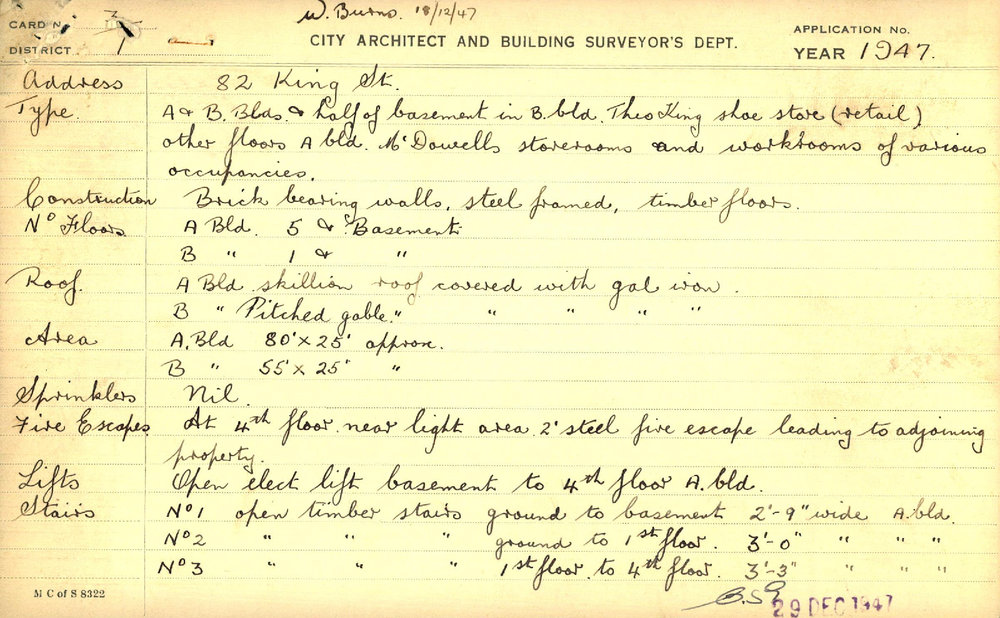 W. Burns. 18/12/47
CARD N
DISTRICT
CITY ARCHITECT AND BUILDING SURVEYOR'S DEPT.
APPLICATION No.
YEAR 1947.
Address 82 King St.
Type. A & B. Blds. & half of basement in B. bld. Theo King shoe store (retail)
other floors A bld. McDowells storerooms and workrooms of various
occupancies.
Construction Brick bearing walls, steel framed, timber floors.
No Floors A Bld. 5 & Basement
B " 1 & "
Roof. A Bld skillion roof covered with gal iron.
B " Pitched gable. " " " " "
Area A. Bld 80' x 25' approx.
B " 55' x 25' "
Sprinklers Nil.
Fire Escapes. At 4th floor near light area 2' steel fire escape leading to adjoining
property.
Lifts Open elect lift basement to 4th floor A. bld.
Stairs No 1 open timber stairs ground to basement 2'-9" wide A. bld.
No 2 " " " ground to 1st floor. 3'-0" " " "
No 3 " " " 1st floor. to 4th floor. 3'-3" " " "
M C of S 8322
29 DEC 1947